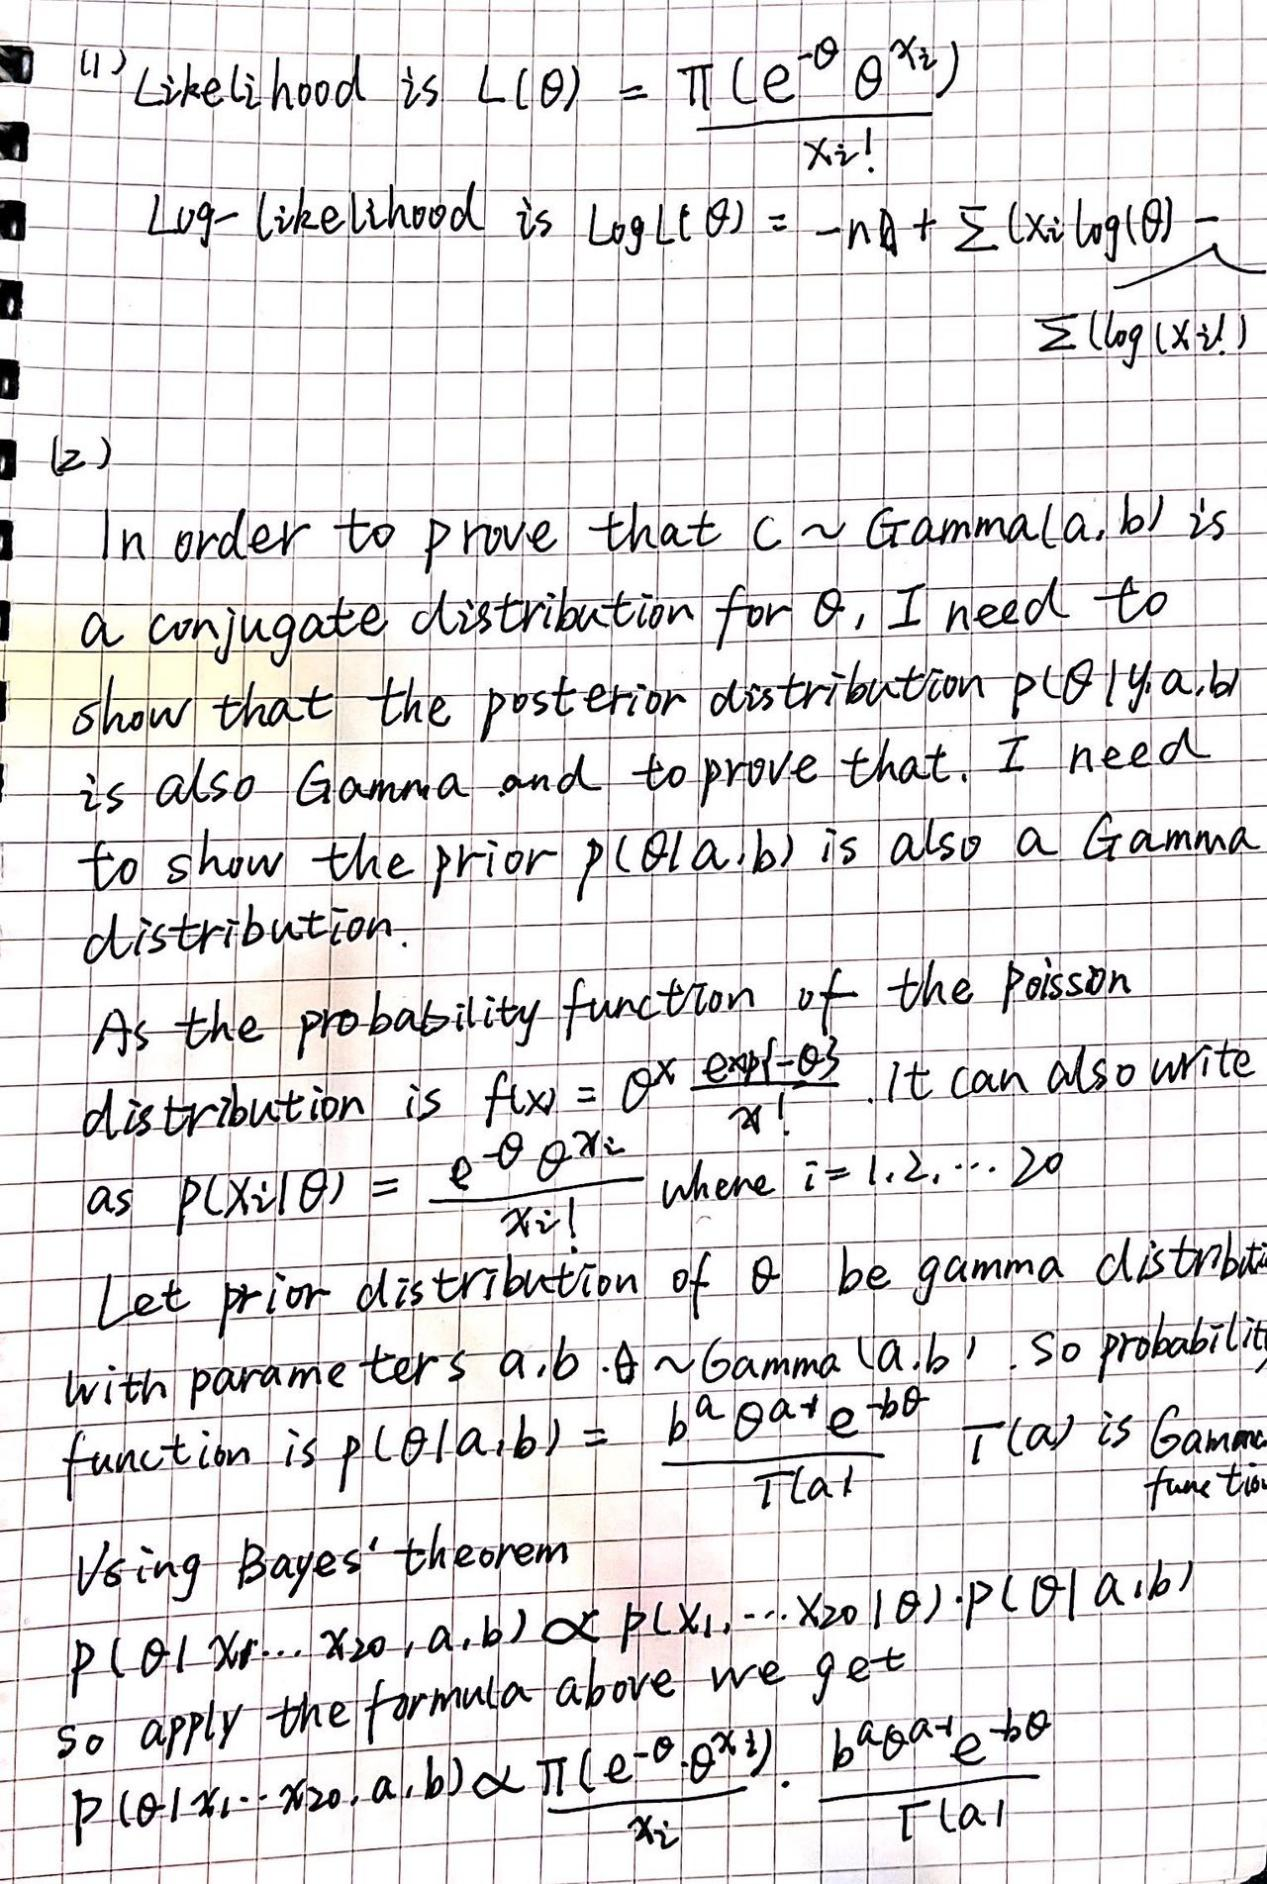 (1) Likelihood is L(θ) = π(e^-θ θ^xi)
xi!
Log-likelihood is LogL(θ) = -nθ + Σ(xi log(θ) -
Σ(log(xi!)
(2)
In order to prove that C ~ Gamma(a,b) is
a conjugate distribution for θ, I need to
show that the posterior distribution p(θ|y,a,b)
is also Gamma and to prove that. I need
to show the prior p(θ|a,b) is also a Gamma
distribution.
As the probability function of the Poisson
distribution is f(x) = θ^x exp{-θ} / x! . it can also write
as p(xi|θ) = e^-θ θ^xi / xi! where i = 1,2,... 20
Let prior distribution of θ be gamma distributi
with parameters a,b. θ ~ Gamma(a,b). So probability
function is p(θ|a,b) = b^a θ^a-1 e^-bθ / Γ(a) Γ(a) is Gamma
function
Using Bayes' theorem
p(θ|x1... x20, a,b) ∝ p(x1,...x20|θ)·p(θ|a,b)
so apply the formula above we get
p(θ|x1...x20, a,b) ∝ π(e^-θ·θ^xi) / xi · b^a θ^a-1 e^-bθ / Γ(a)